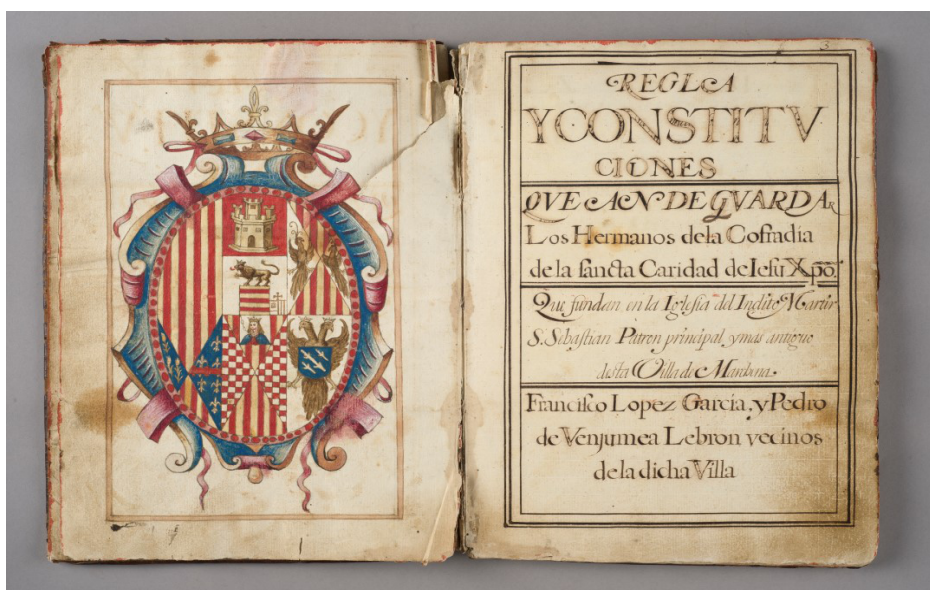 3
REGLA
Y CONSTITV
CIONES
QVE AN DE GVARDAR
Los Hermanos dela Cofradia
de la sancta Caridad de Iesu Xpõ
Que fundan en la Iglesia del Inclito Martir
S. Sebastian Patron principal, y mas antiguo
desta Villa de Marchena.
Francisco Lopez Garcia, y Pedro
de Venjumea Lebron vecinos
dela dicha Villa